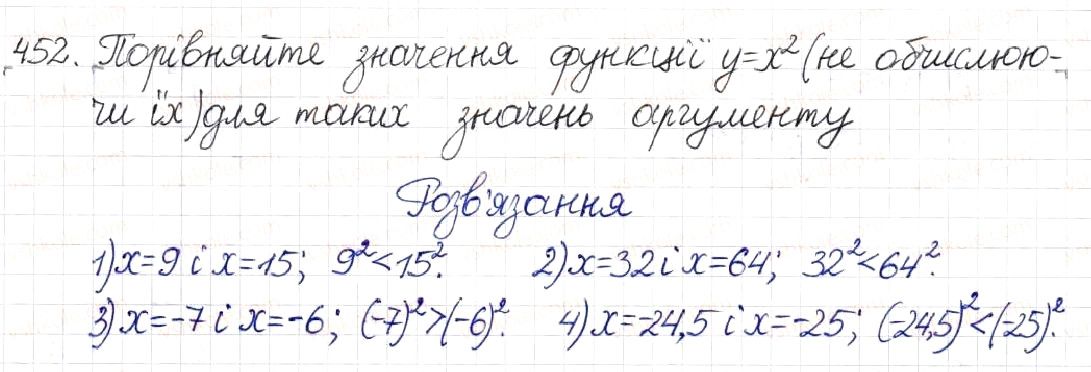 452. Порівняйте значення функції y=x² (не обчислюю-
чи їх) для таких значень аргументу
Розв'язання
1) x=9 і x=15; 9²<15². 2) x=32 і x=64; 32²<64².
3) x=-7 і x=-6; (-7)²>(-6)². 4) x=-24,5 і x=-25; (-24,5)²<(-25)².